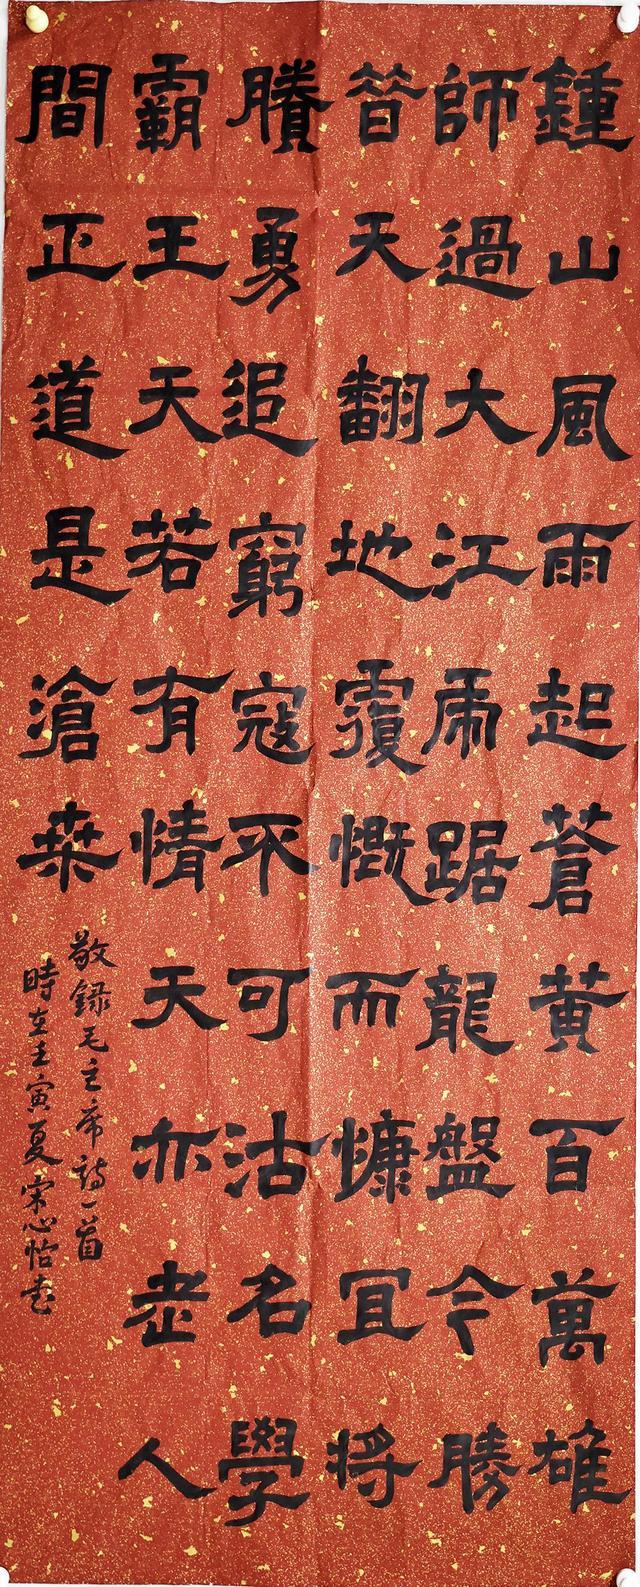 鍾山風雨起蒼黃百萬雄
師過大江虎踞龍盤今勝
昔天翻地覆慨而慷宜將
賸勇追窮寇不可沽名學
霸王天若有情天亦老人
間正道是滄桒
敬録毛主席詩一首
時在壬寅夏宋心怡書